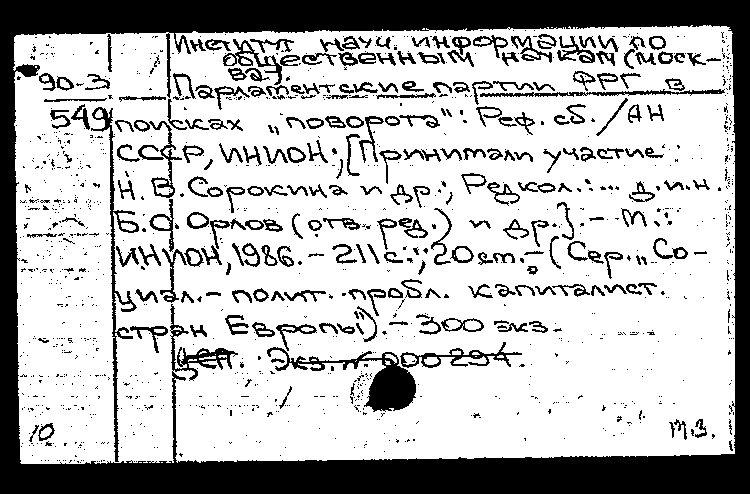 Институт науч. информации по
общественным наукам (Моск-
ва).
90-3
Парламентские партии ФРГ в
549
поисках "поворота": Реф. сб. / АН
СССР, ИНИОН; [Принимали участие:
Н. В. Сорокина и др.; Редкол.: ... д.и.н.
Б. О. Орлов (отв. ред.) и др.]. - М.:
ИНИОН, 1986. - 211 с.; 20 см. - (Сер. "Со-
циал.-полит. пробл. капиталист.
стран Европы"). - 300 экз.
Экз. N 000294.
10